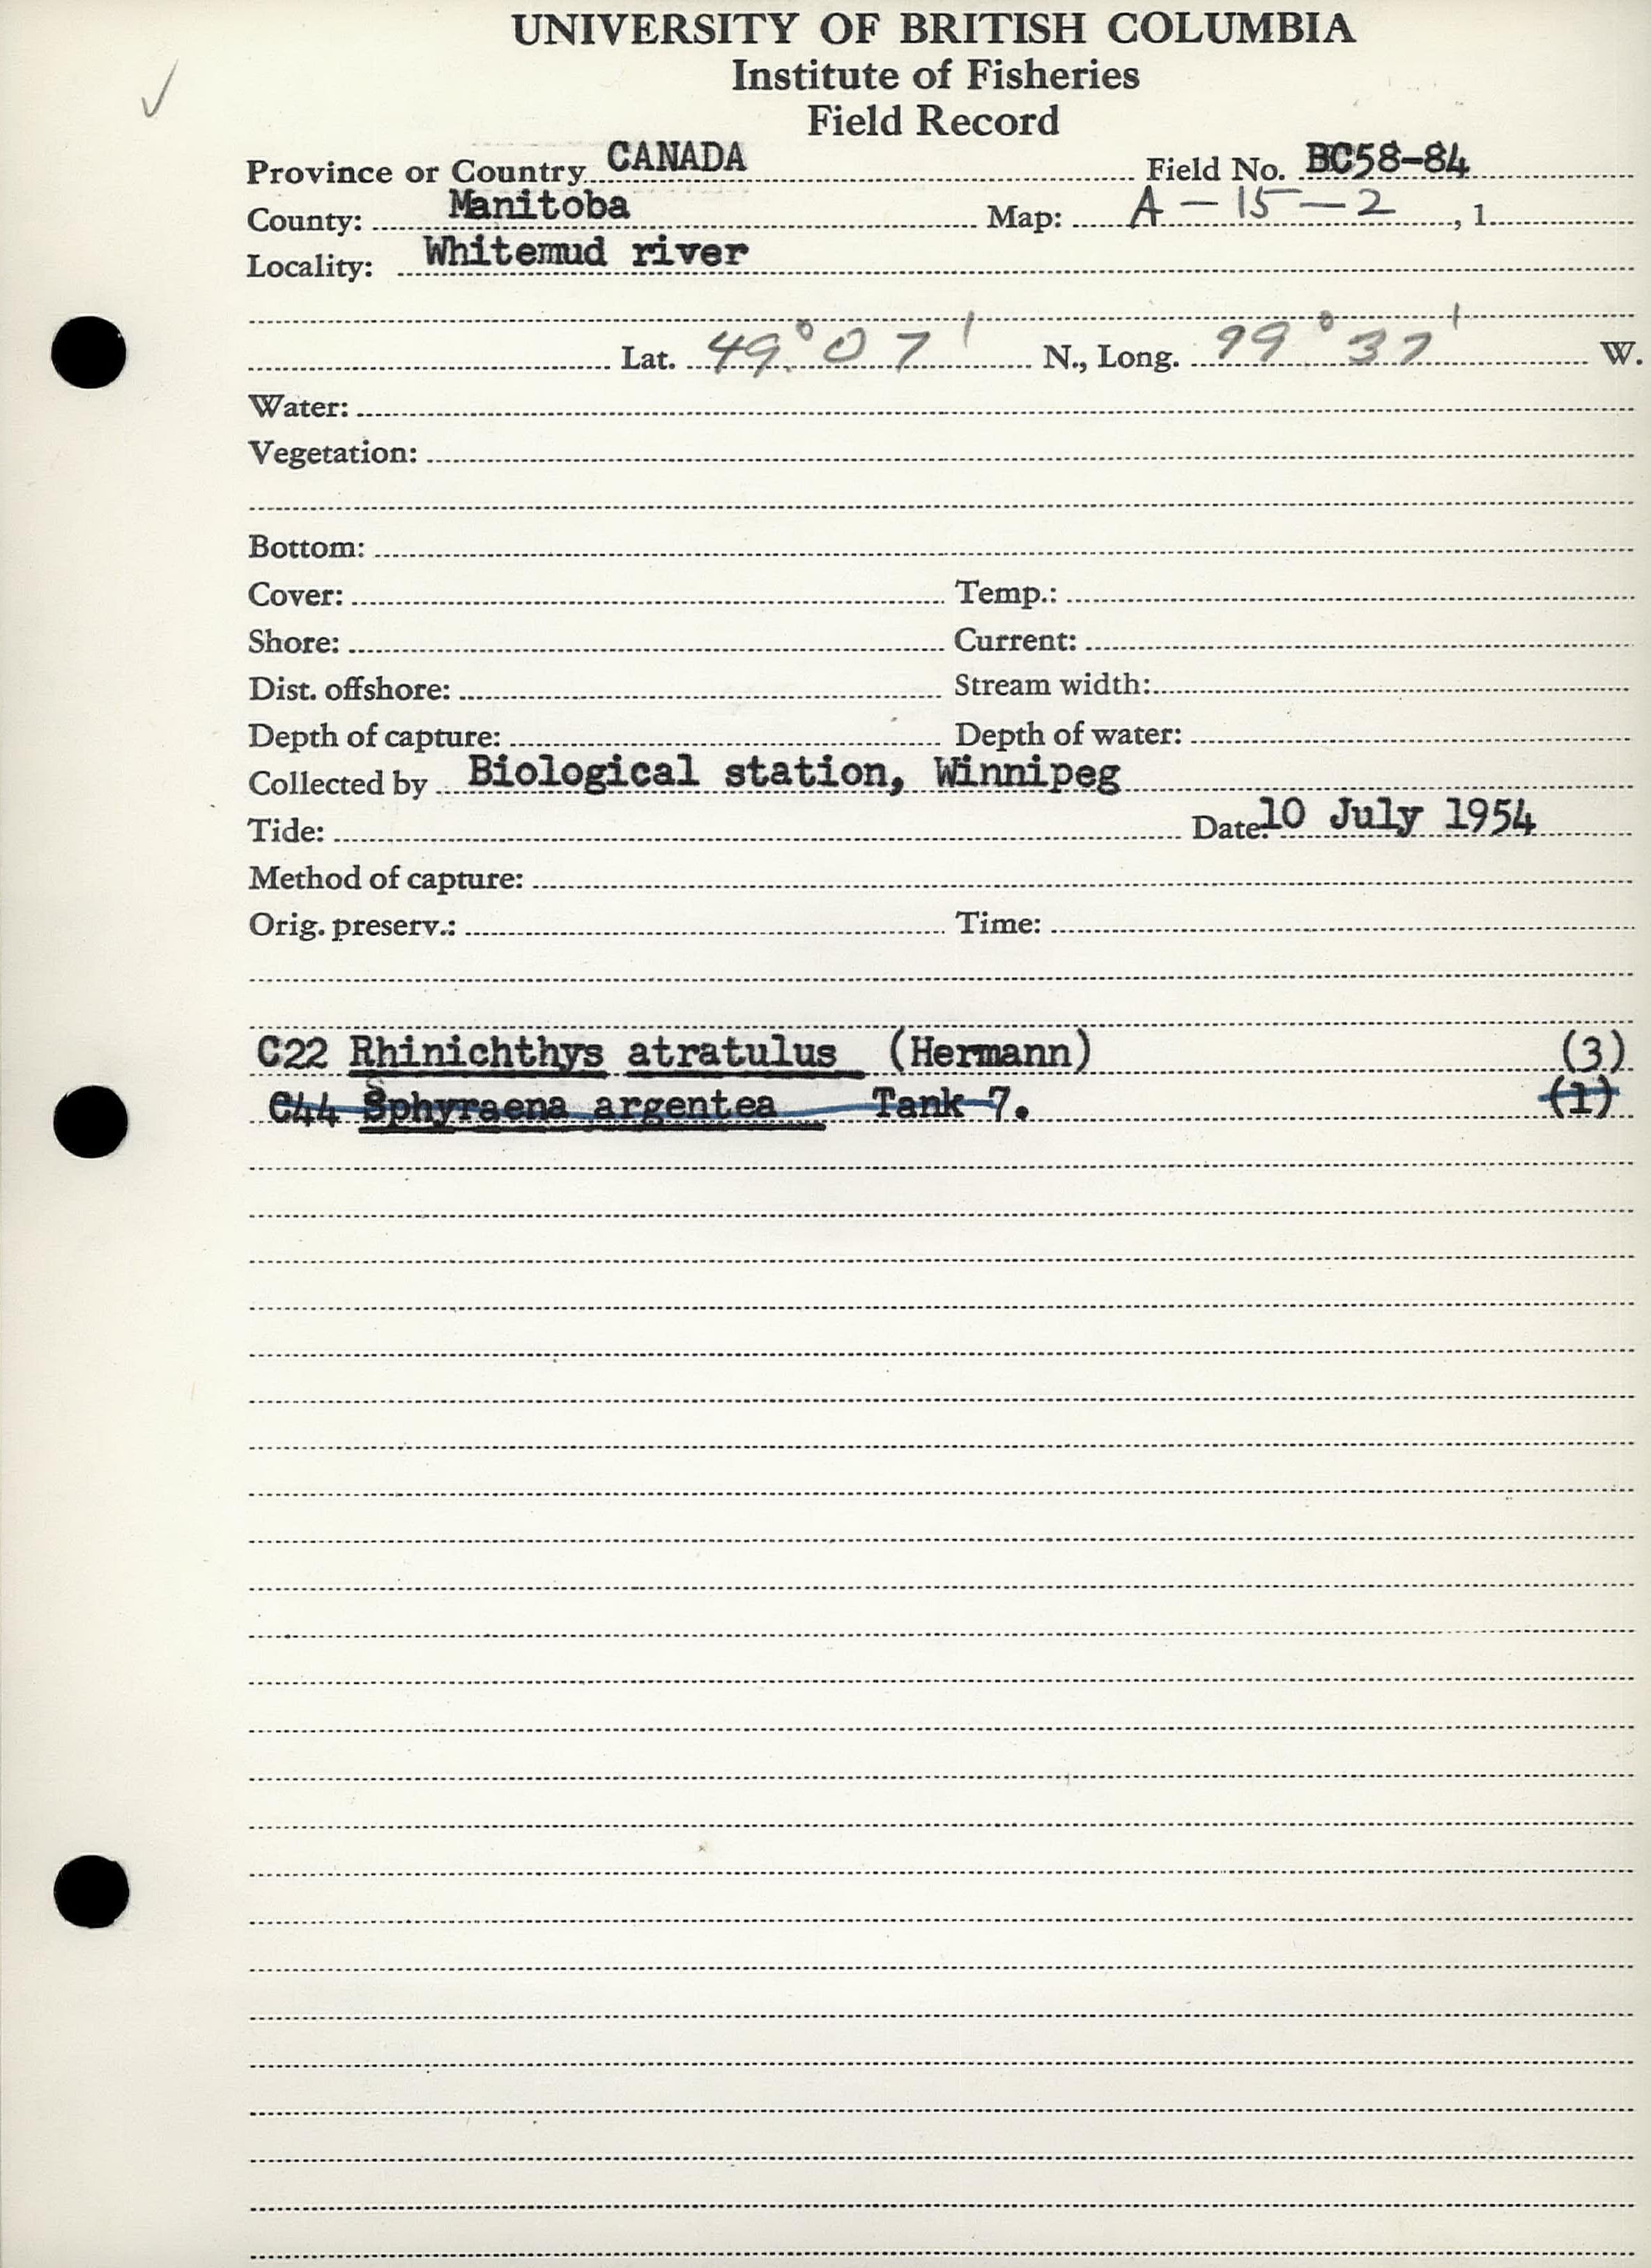 UNIVERSITY OF BRITISH COLUMBIA
Institute of Fisheries
Field Record
Province or Country CANADA Field No. BC58-84
County: Manitoba Map: A-15-2, 1
Locality: Whitemud river
Lat. 49°07' N., Long. 99°37' W.
Water:
Vegetation:
Bottom:
Cover: Temp.:
Shore: Current:
Dist. offshore: Stream width:
Depth of capture: Depth of water:
Collected by Biological station, Winnipeg
Tide: Date: 10 July 1954
Method of capture:
Orig. preserv.: Time:
C22 Rhinichthys atratulus (Hermann) (3)
C44 Sphyraena argentea Tank 7. (1)